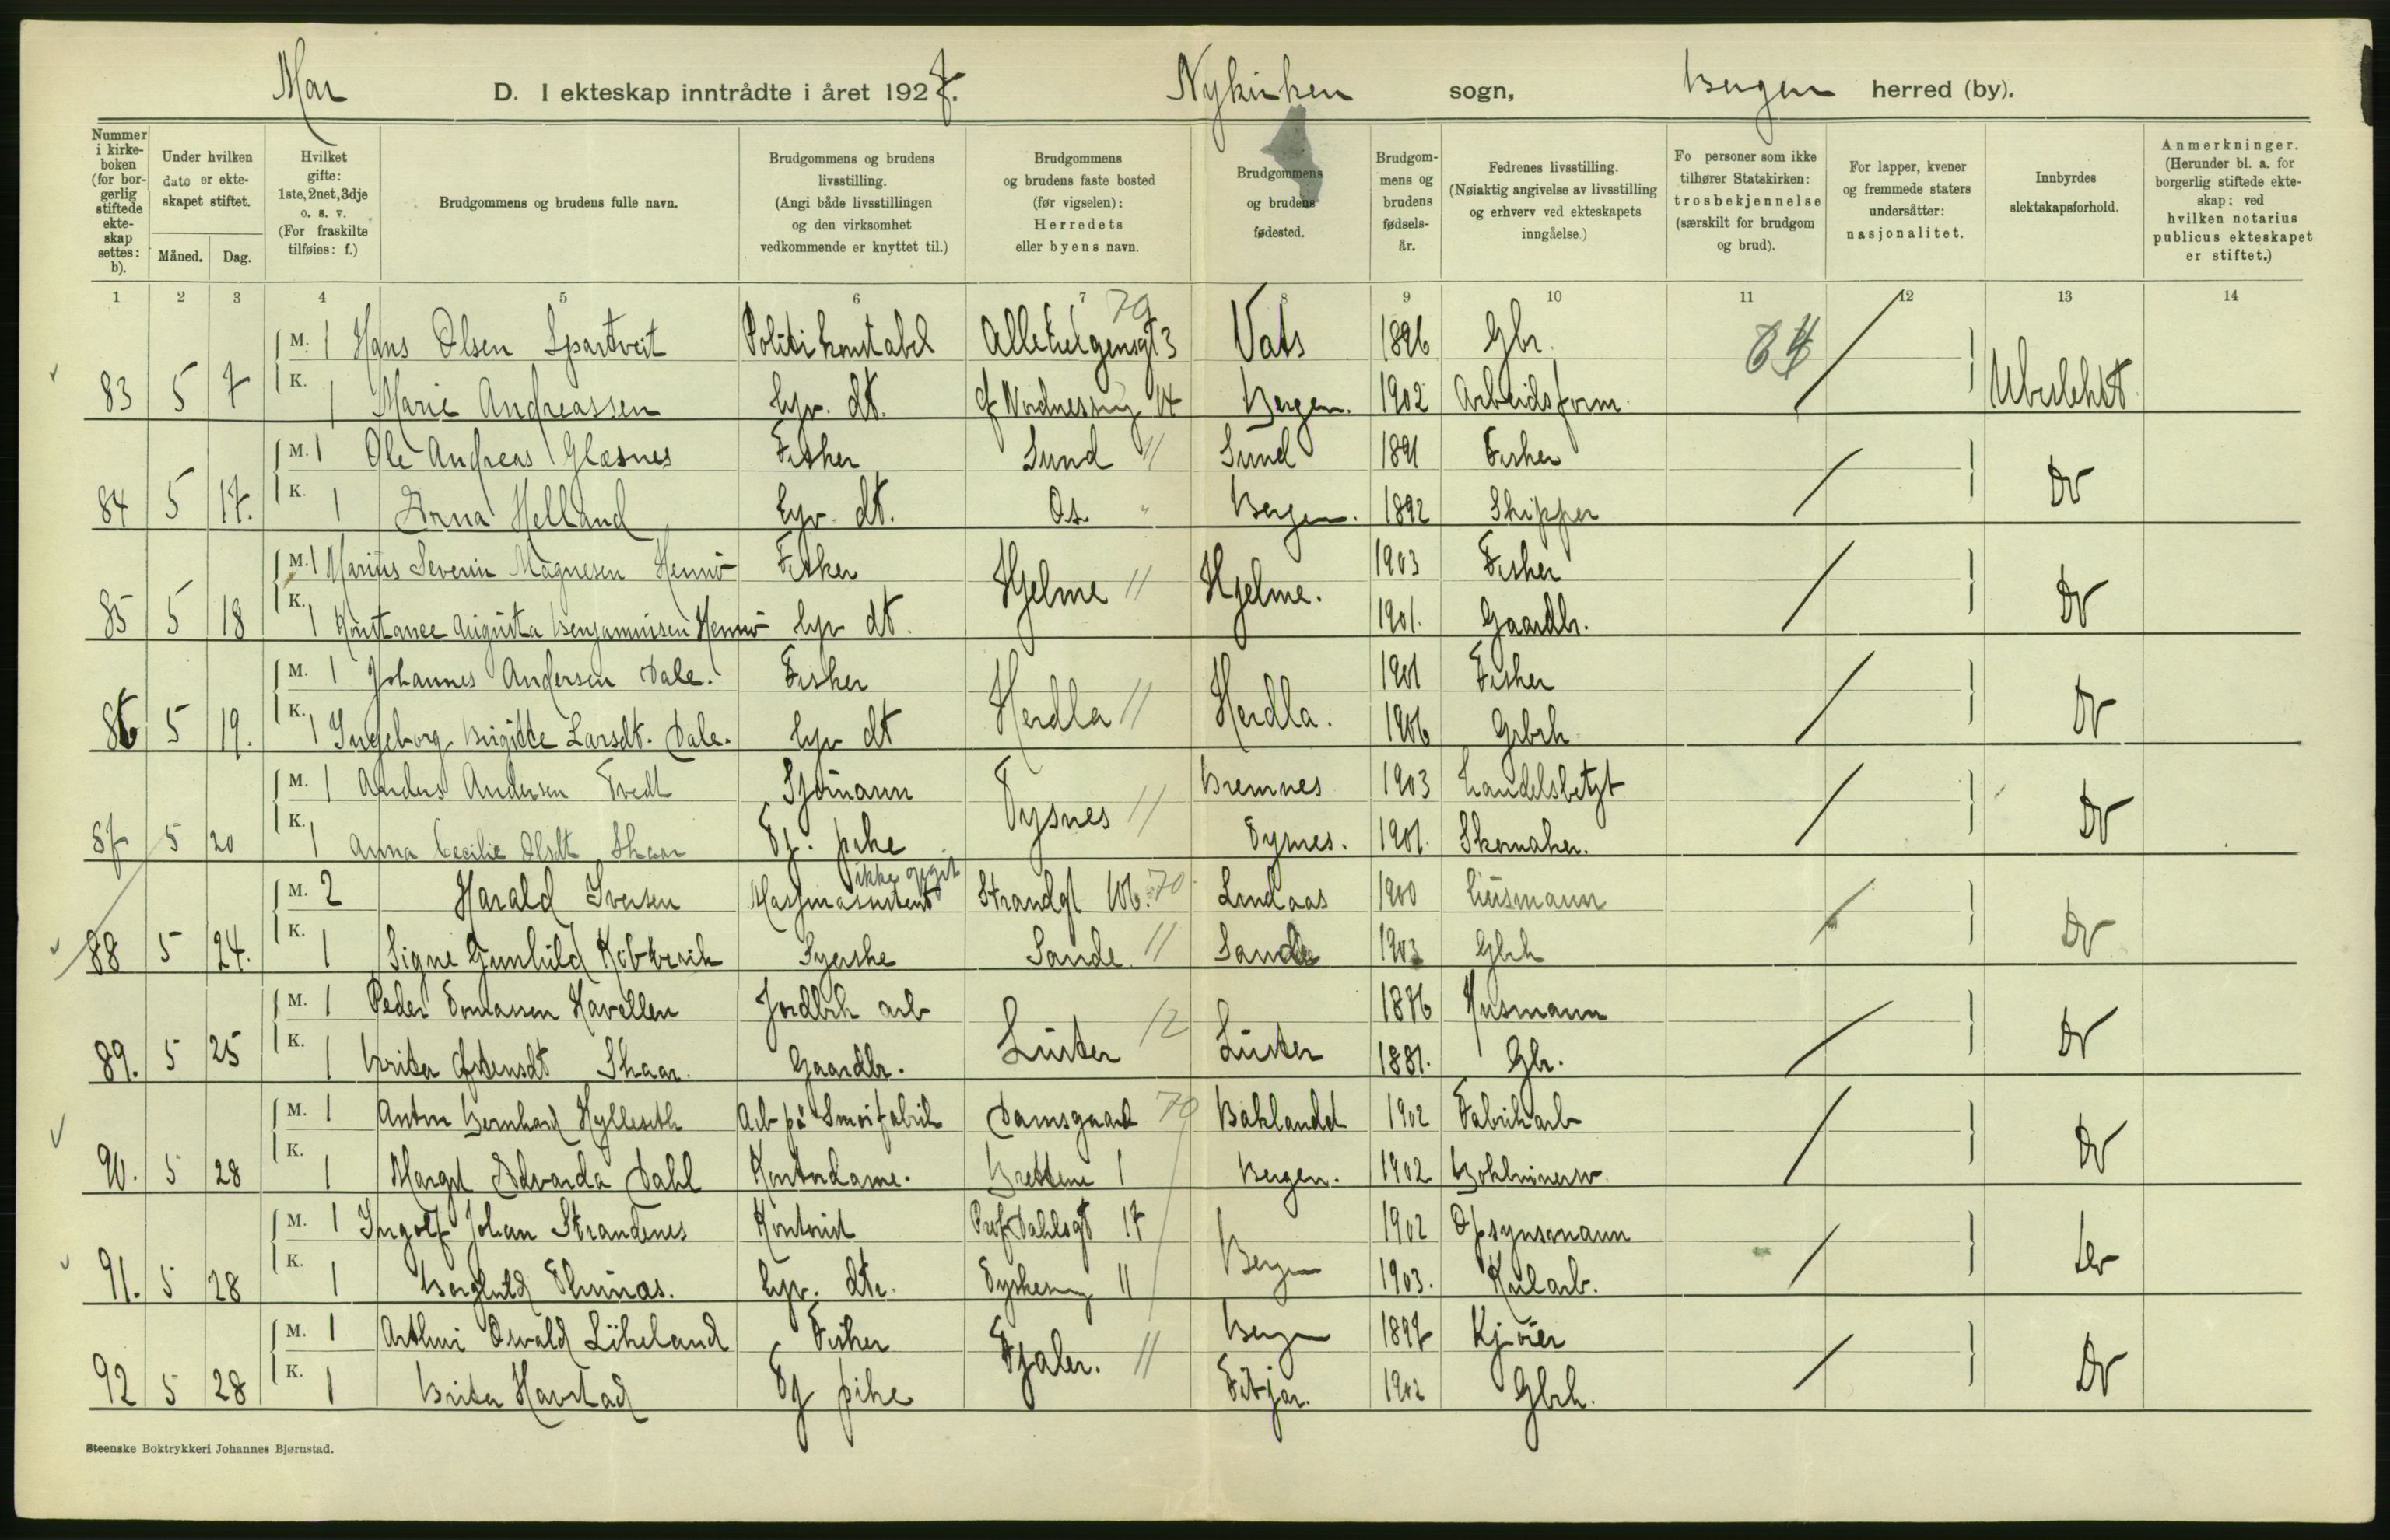 Mai D. I ekteskap inntrådte i året 1927. Nykirken sogn, Bergen herred (by).
Nummer i kirkeboken (for borgerlig stiftede ekteskap settes: b).
Under hvilken dato er ekteskapet stiftet.
Måned. Dag.
Hvilket gifte: 1ste, 2net, 3dje o. s. v. (For fraskilte tilføies: f.)
Brudgommens og brudens fulle navn.
Brudgommens og brudens livsstilling. (Angi både livsstillingen og den virksomhet vedkommende er knyttet til.)
Brudgommens og brudens faste bosted (før vigselen): Herredets eller byens navn.
Brudgommens og brudens fødested.
Brudgommens og brudens fødselsår.
Fedrenes livsstilling. (Nøiaktig angivelse av livsstilling og erhverv ved ekteskapets inngåelse.)
Fo personer som ikke tilhører Statskirken: trosbekjennelse (særskilt for brudgom og brud).
For lapper, kvener og fremmede staters undersåtter: nasjonalitet.
Innbyrdes slektskapsforhold.
Anmerkninger. (Herunder bl. a. for borgerlig stiftede ekteskap: ved hvilken notarius publicus ekteskapet er stiftet.)
1 2 3 4 5 6 7 8 9 10 11 12 13 14
70
M. 1 Hans Olsen Politikonstabel Allehelgensgt 3 Vats 1896 Gbr.
83 5 7 K. 1 Marie Andreassen Hjv. dt. Nordnesvei Bergen. 1902 Arbeidsform. Ubeslektet
M. 1 Ole Andreas Glæsnes Fisker Sund 11 Sund 1891 Fisker
84 5 17. K. 1 Anna Helland Hjv. dt. Os. " Bergen. 1892 Skipper Do
M. 1 Marius Severin Magnesen Hennø Fisker Hjelme 11 Hjelme. 1903 Fisker
85 5 18 K. 1 Konstance Augusta Benjaminsen Hennø Hjv dt. 1901. Gaardbr. Do
M. 1 Johannes Andersen Dale. Fisker Herdla 11 Herdla. 1901 Fisker
86 5 19. K. 1 Ingeborg Birgitte Larsdt. Dale. Hjv dt 1906 Grbrk Do
M. 1 Anders Andersen Tvedt Sjømann Tysnes 11 Bremnes 1903 Handelsbetjt
87 5 20 K. 1 Anna Cecilie Olsdt Skaar Tj. pike Tysnes. 1901. Skomaker. Do
ikke opgit
M. 2 Harald Iversen Maskinassistent Strandgt 106. 70 Lindaas 1900 Husmann
88 5 24. K. 1 Signe Gunhild Syerske Sande 11 Sande 1903 Gbrk Do
M. 1 Peder Tomassen Havellen Jordbrk arb Luster 12 Luster 1876 Husmann
89. 5 25 K. 1 Brita Skaar. Gaardbr. 1881. Gbr. Do
M. 1 Anton Bernhard Hylleseth Arb på Smørfabrik Damsgaard 70 Baklandet 1902 Fabrikarb
90. 5 28 K. 1 Margit Edvarda Dahl Kontordame. 1 Bergen. 1902 Do
M. 1 Ingolf Johan Strandenes Kontorist Prof Dahlsgt 17 Bergen 1902 Opsynsmann
91. 5 28 K. 1 Borghild Thunæs. Hjv. dtr. 11 1903. Kularb. Do
M. 1 Arthur Osvald Løkeland Fisker Fjaler. 11 Bergen 1897 Kjører
92 5 28 K. 1 Brita Havstad Tj pike Fitjar. 1902 Gbrk. Do
Steenske Boktrykkeri Johannes Bjørnstad.